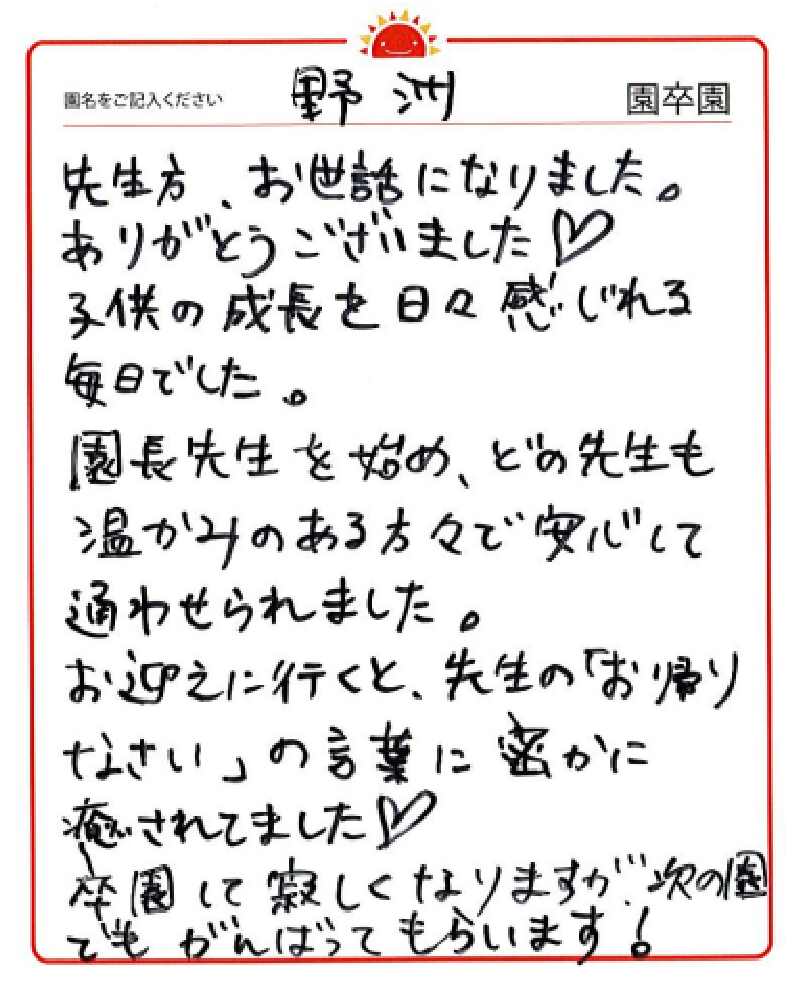 園名をご記入ください 野洲 園卒園
先生方、お世話になりました。
ありがとうございました♡
子供の成長を日々感じれる
毎日でした。
園長先生を始め、どの先生も
温かみのある方々で安心して
通わせられました。
お迎えに行くと、先生の「お帰り
なさい」の言葉に密かに
癒されてました♡
卒園して寂しくなりますが、次の園
でもがんばってもらいます!